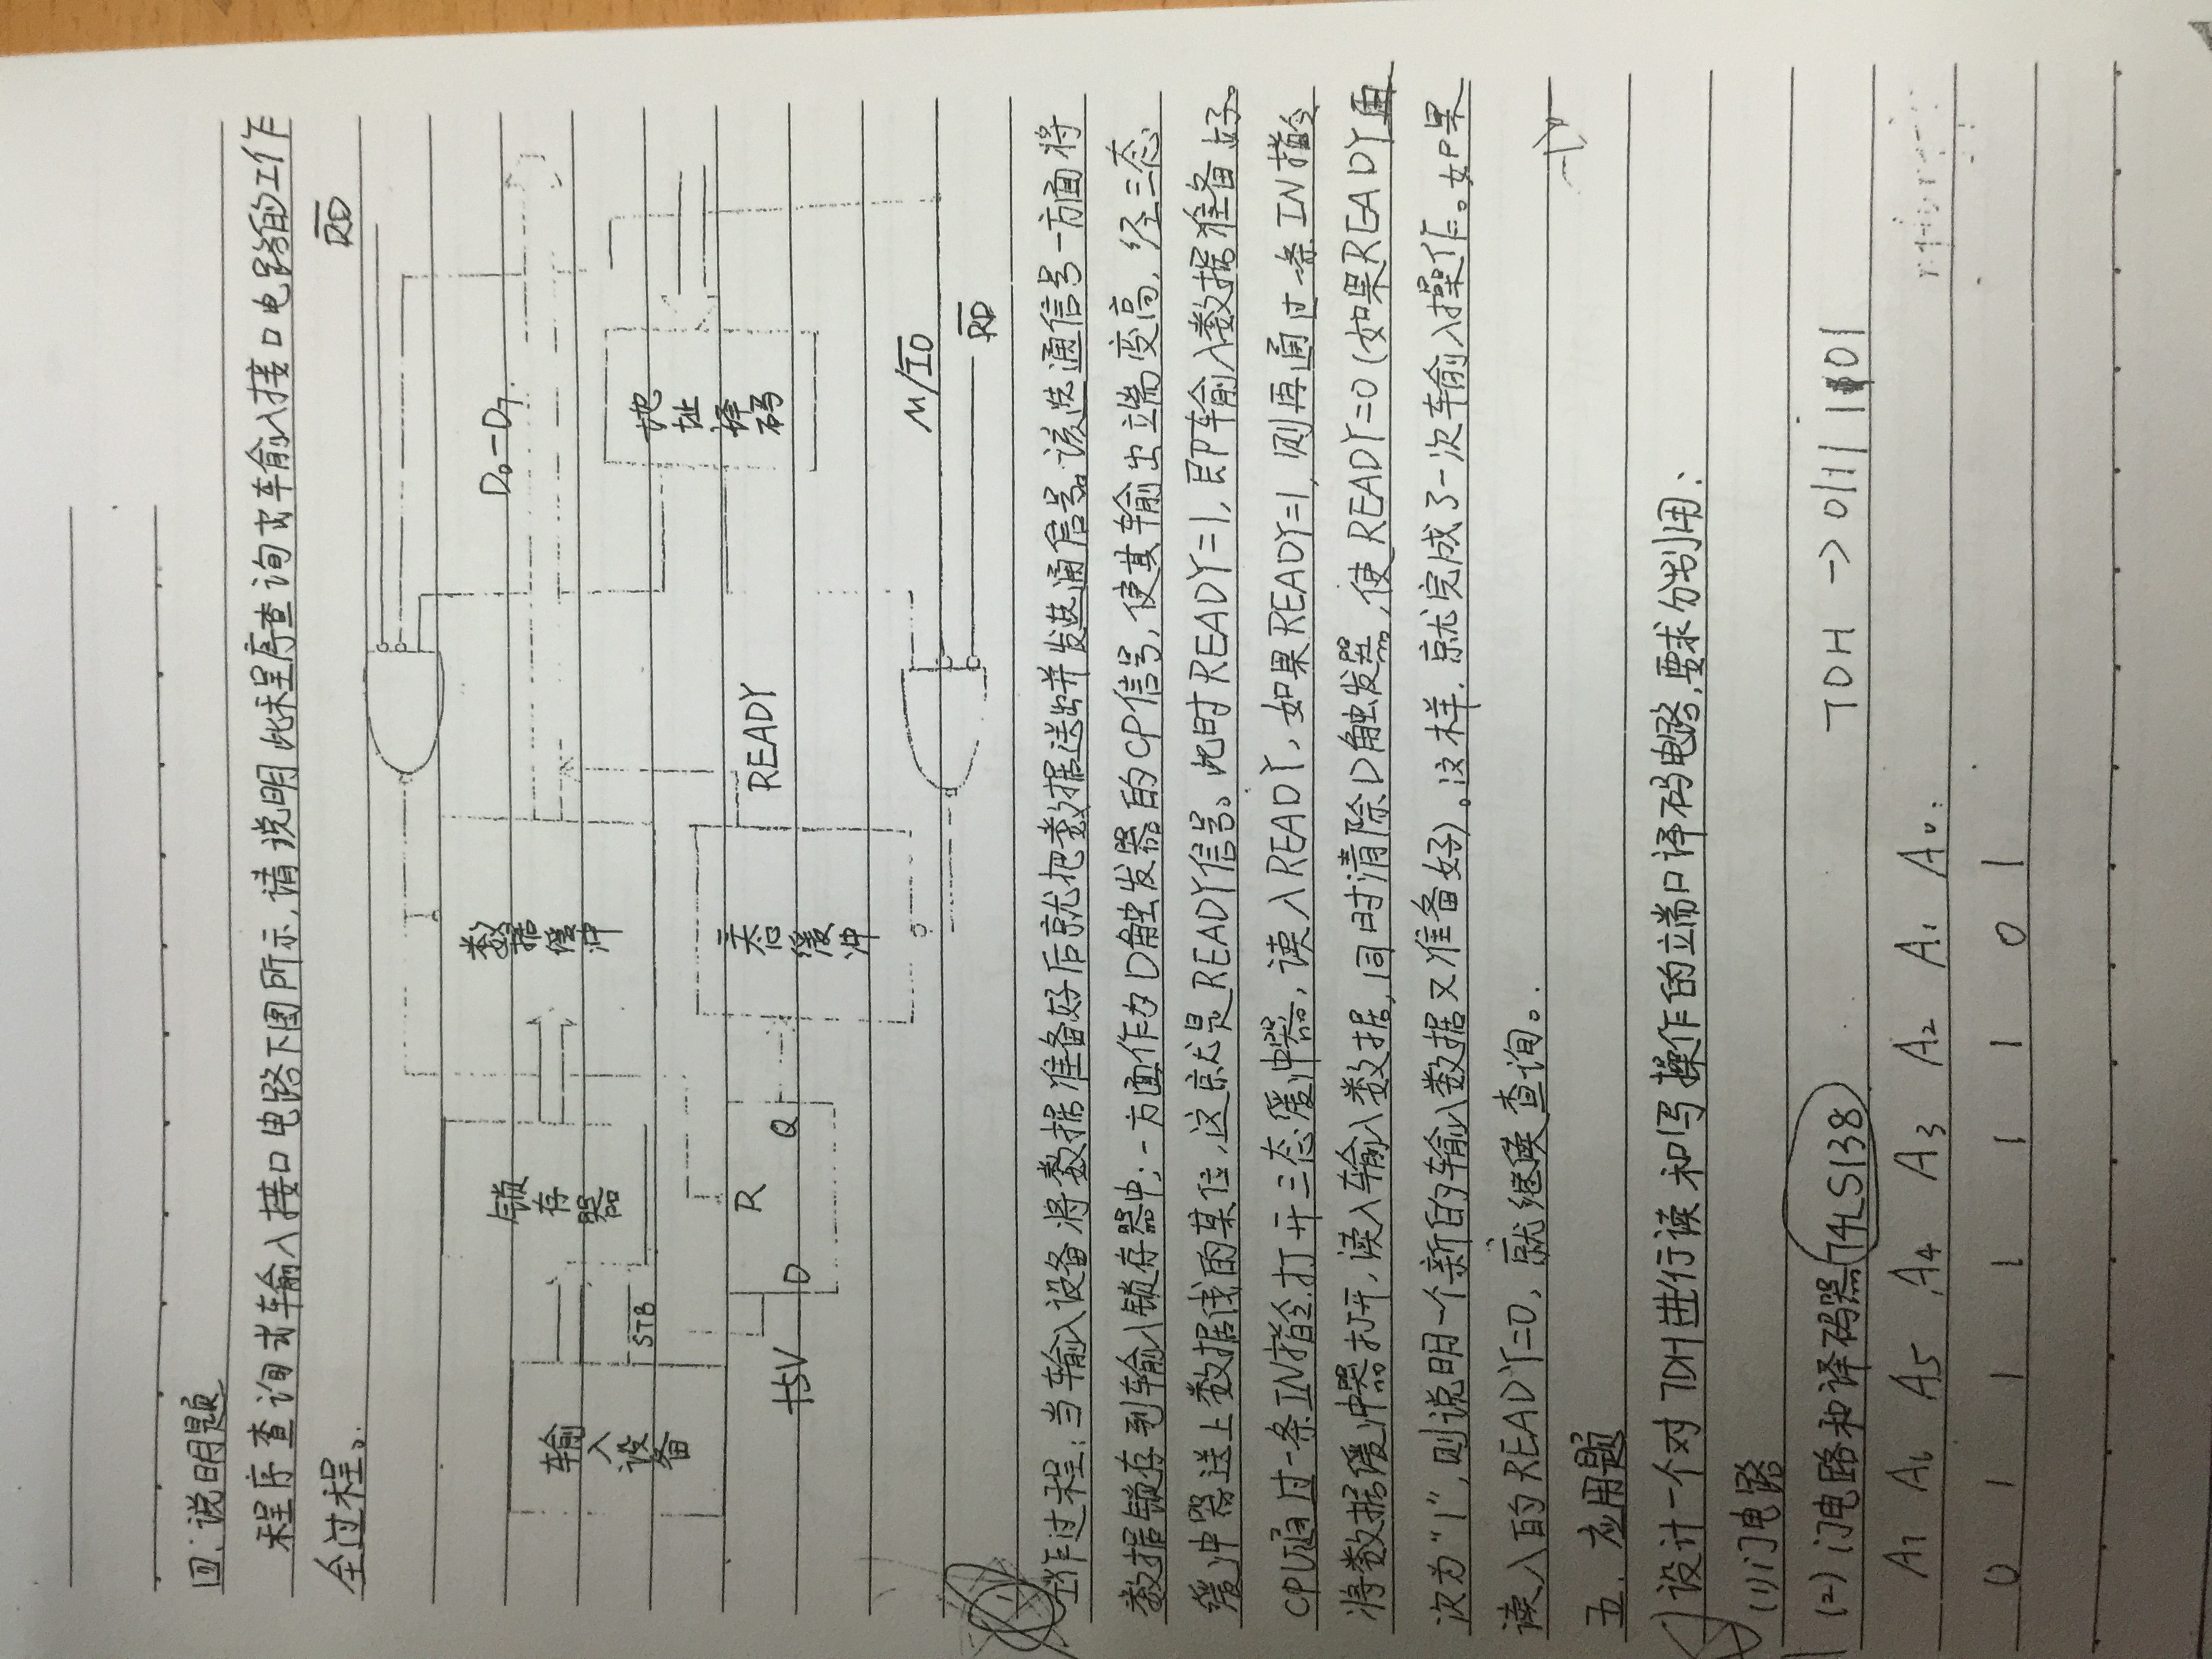 四、说明题
程序查询式输入接口电路下图所示,请说明此程序查询式输入接口电路的工作
全过程。
RD
D0-D7
输入设备
锁存器
数据缓冲
STB
地址译码
R
三态缓冲
READY
+5V
D
Q
M/IO
RD
工作过程:当输入设备将数据准备好后就把数据送出并发选通信号。该选通信号一方面将
数据锁存到输入锁存器中;一方面作为D触发器的CP信号,使其输出端变高,经三态
缓冲器送上数据线的某位,这就是READY信号。此时READY=1,即输入数据准备好。
CPU通过一条IN指令打开三态缓冲器,读入READY,如果READY=1,则再通过一条IN指令
将数据缓冲器打开,读入输入数据,同时清除D触发器,使READY=0(如果READY再
次为“1”,则说明一个新的输入数据又准备好)。这样,就完成了一次输入操作。如果
读入的READY=0,就继续查询。
五、应用题
设计一个对7DH进行读和写操作的端口译码电路,要求分别用:
(1)门电路
(2)门电路和译码器74LS138
7DH → 0111 1101
A7 A6 A5 A4 A3 A2 A1 A0
0 1 1 1 1 1 0 1